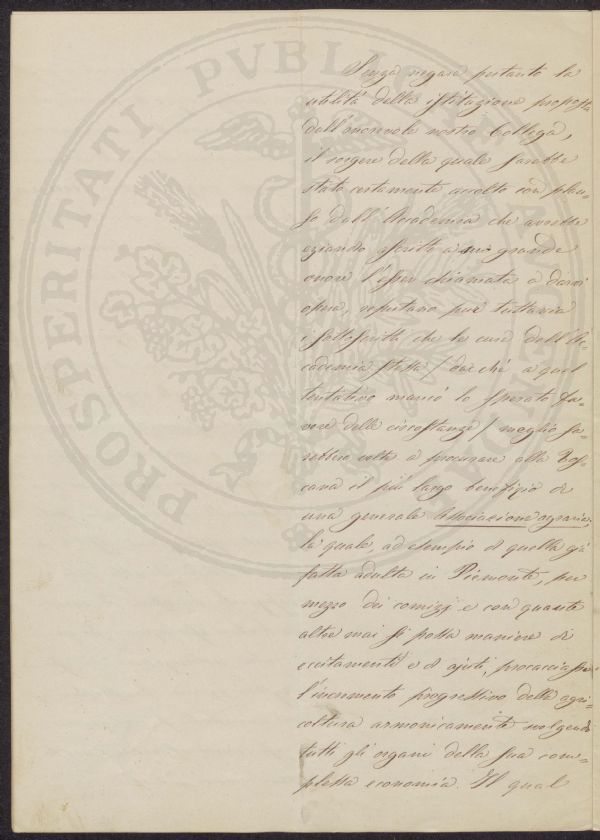 PROSPERITATI PVBLICAE AVGENDAE
Senza negare pertanto la
utilità della istituzione proposta
dall'onorevole nostro Collega,
il sorgere della quale sarebbe
stato certamente accolto con plau=
so dall'Accademia che avrebbe
eziandio ascritto a suo grande
onore l'esser chiamata a darvi
opera, reputano pur tuttavia
i sottoscritti che le cure dell'Ac=
cademia stessa (daché a quel
tentativo mancò lo sperato fa=
vore delle circostanze) meglio sa=
rebbero volte a procurare alla Tos=
cana il più largo benefizio di
una generale Associazione agraria,
la quale, ad esempio di quella già
fatta adulta in Piemonte, per
mezzo dei comizj e con quante
altre mai si possa maniere di
eccitamenti e d'ajuti, procacciasse
l'incremento progressivo dell'agri=
coltura armonicamente svolgendo
tutti gli organi della sua com=
plessa economia. Il qual